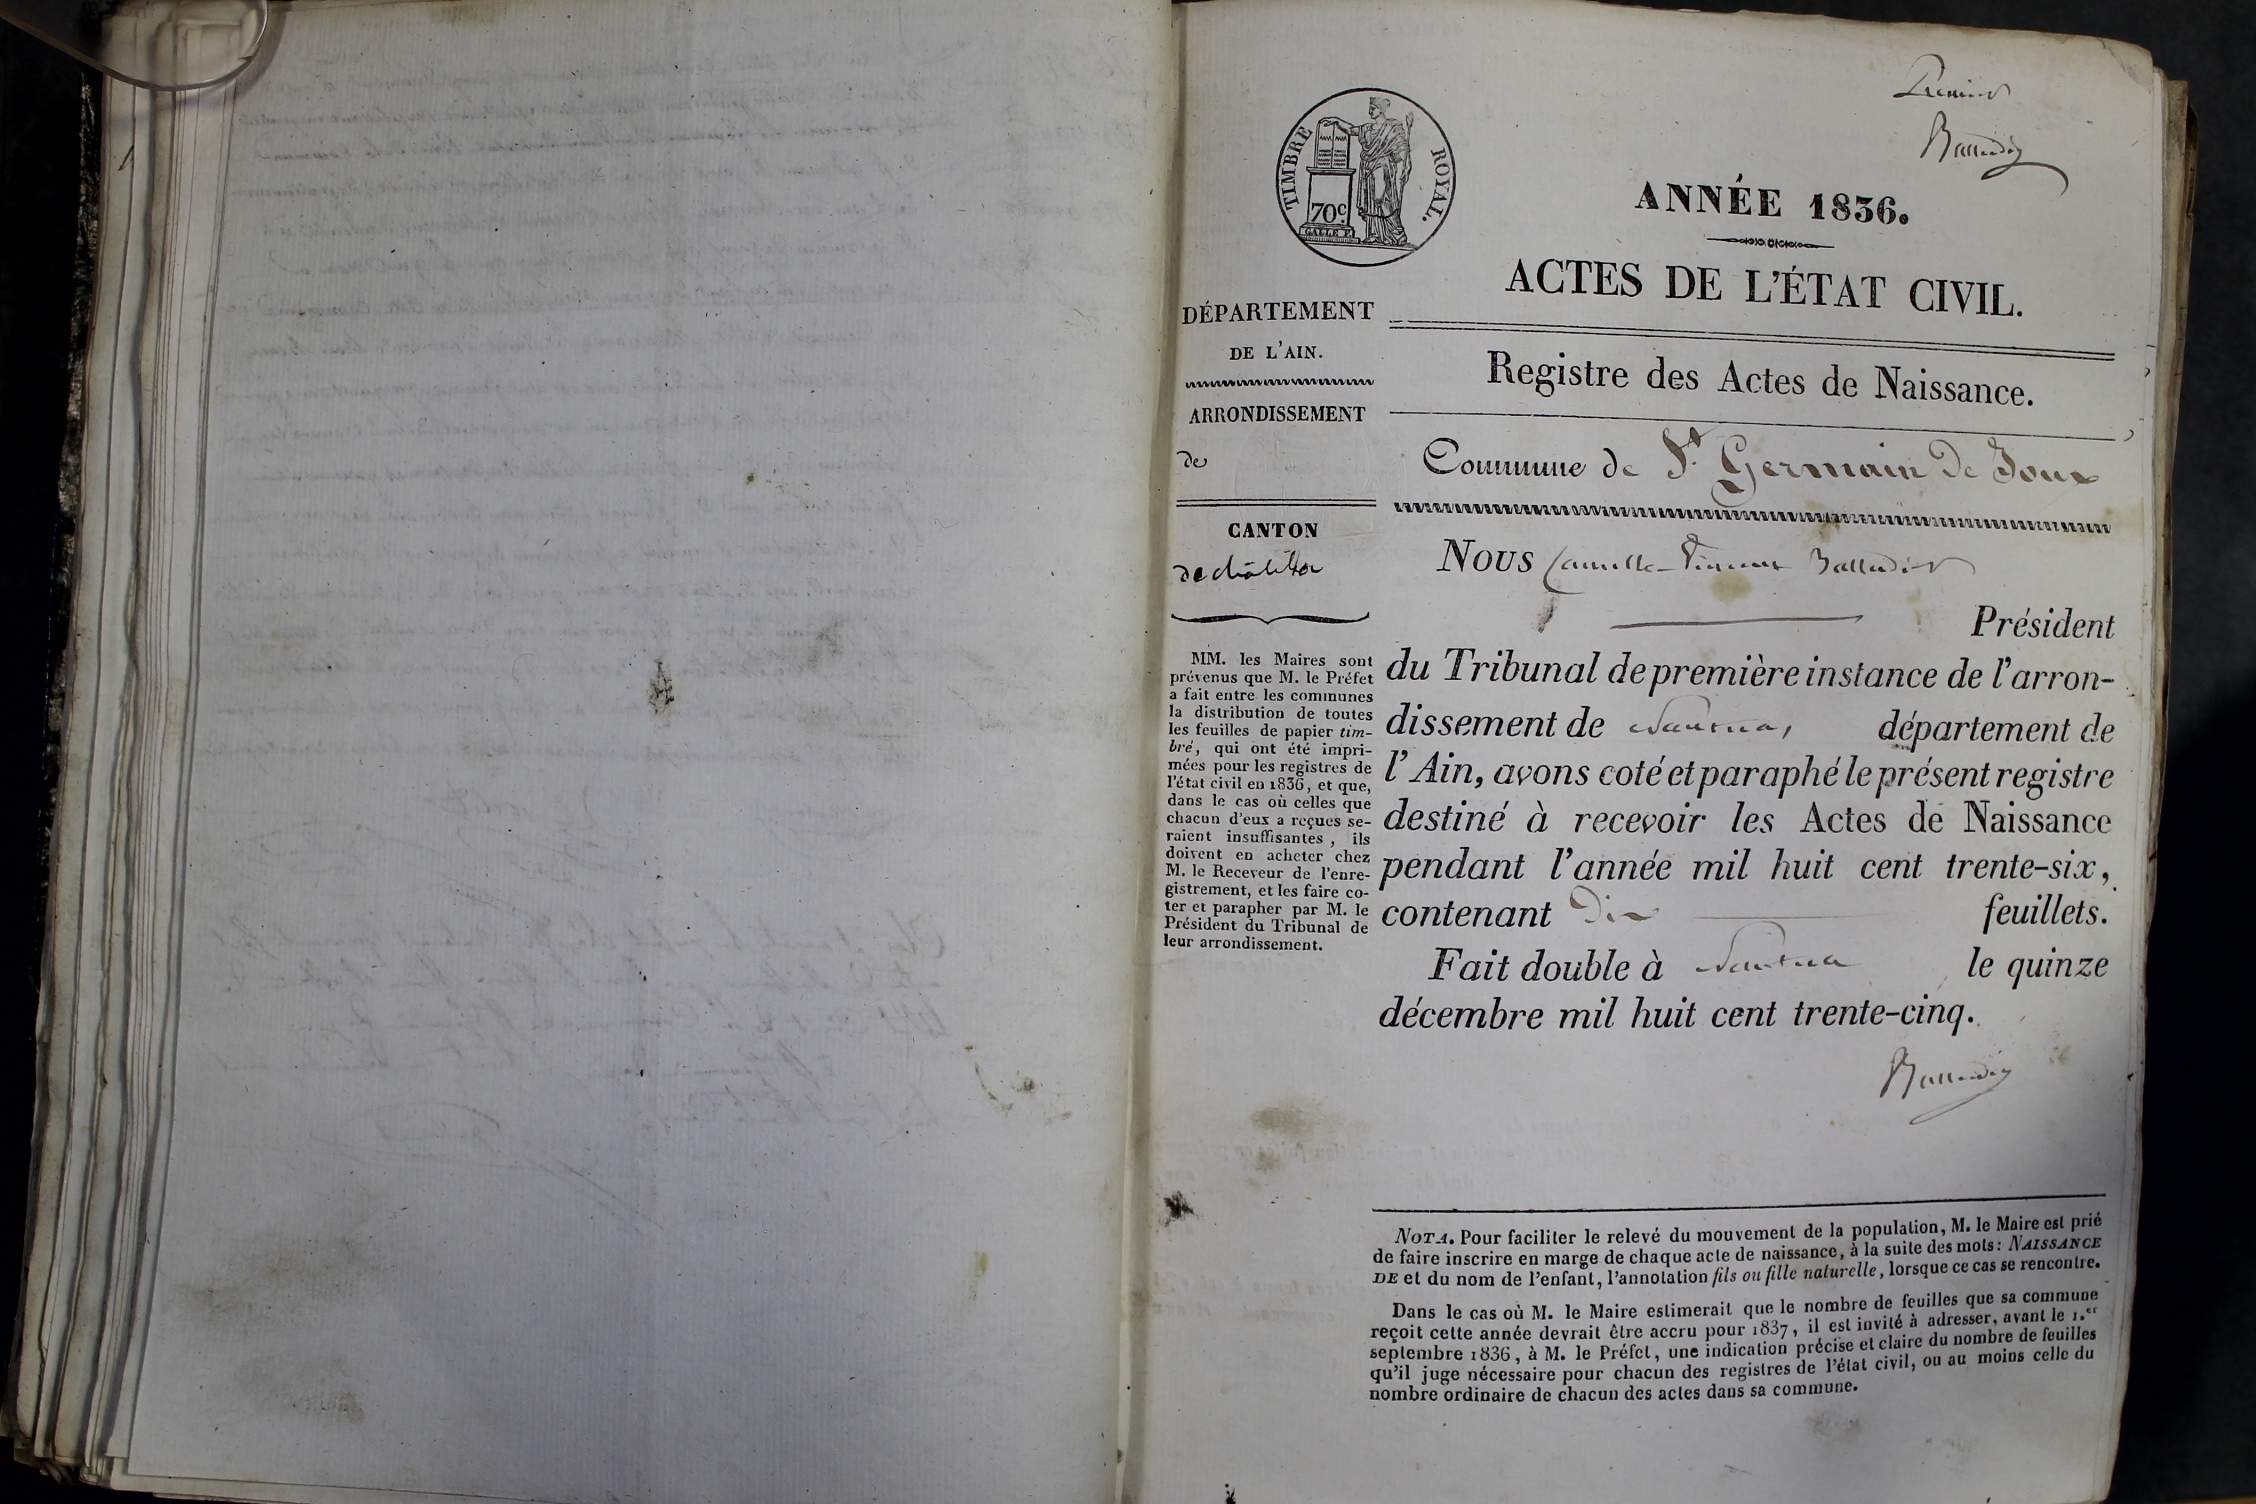 Premier
TIMBRE ROYAL.
70c.
GALLE F.
ANNÉE 1836.
ACTES DE L'ÉTAT CIVIL.
Registre des Actes de Naissance.
Commune de St. Germain de Joux
DÉPARTEMENT
DE L'AIN.
ARRONDISSEMENT
de
CANTON
de châtillon
MM. les Maires sont
prévenus que M. le Préfet
a fait entre les communes
la distribution de toutes
les feuilles de papier tim-
bré, qui ont été impri-
mées pour les registres de
l'état civil en 1836, et que,
dans le cas où celles que
chacun d'eux a reçues se-
raient insuffisantes, ils
doivent en acheter chez
M. le Receveur de l'enre-
gistrement, et les faire co-
ter et parapher par M. le
Président du Tribunal de
leur arrondissement.
Nous Camille-Vincent
Président
du Tribunal de première instance de l'arron-
dissement de Nantua, département de
l'Ain, avons coté et paraphé le présent registre
destiné à recevoir les Actes de Naissance
pendant l'année mil huit cent trente-six,
contenant Dix feuillets.
Fait double à Nantua le quinze
décembre mil huit cent trente-cinq.
NOTA. Pour faciliter le relevé du mouvement de la population, M. le Maire est prié
de faire inscrire en marge de chaque acte de naissance, à la suite des mots: NAISSANCE
DE et du nom de l'enfant, l'annotation fils ou fille naturelle, lorsque ce cas se rencontre.
Dans le cas où M. le Maire estimerait que le nombre de feuilles que sa commune
reçoit cette année devrait être accru pour 1837, il est invité à adresser, avant le 1.er
septembre 1836, à M. le Préfet, une indication précise et claire du nombre de feuilles
qu'il juge nécessaire pour chacun des registres de l'état civil, ou au moins celle du
nombre ordinaire de chacun des actes dans sa commune.